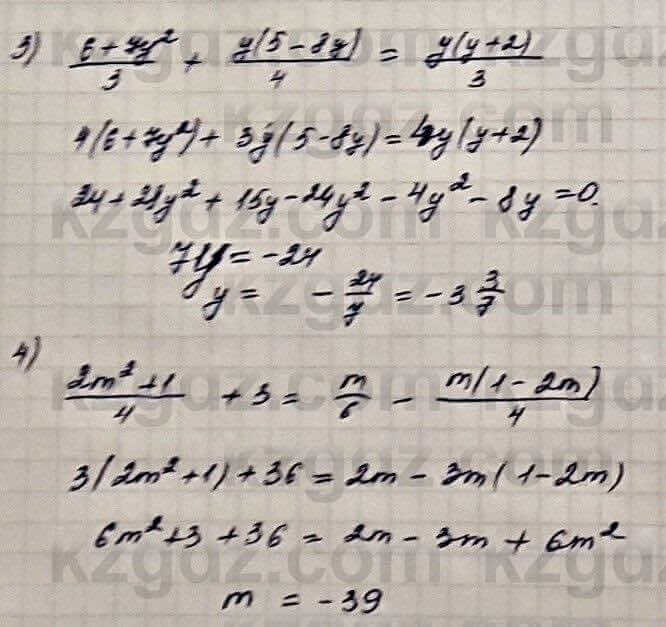 3) (6+7y²)/3 + y(5-8y)/4 = y(y+2)/3
4(6+7y²) + 3y(5-8y) = 4y(y+2)
24+28y²+15y-24y²-4y²-8y=0.
7y=-24
y= -24/7 = -3 3/7
4)
(2m²+1)/4 + 3 = m/6 - m(1-2m)/4
3(2m²+1)+36=2m-3m(1-2m)
6m²+3+36=2m-3m+6m²
m=-39
kzgdz.com